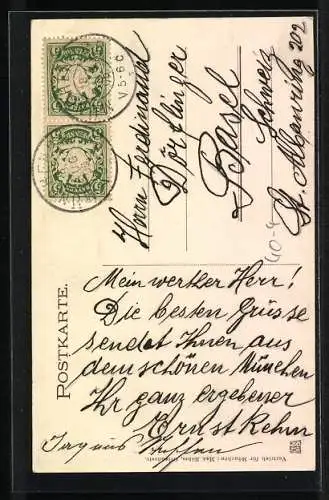 POSTKARTE.
Herrn Ferdinand
Dörflinger
Basel
Schweiz
St. Albanring 202
40-9
Mein werther Herr!
Die besten Grüsse
sendet Ihnen aus
dem schönen München
Ihr ganz ergebener
Ernst Kehm
BAYERN
BAYERN
V 5-6